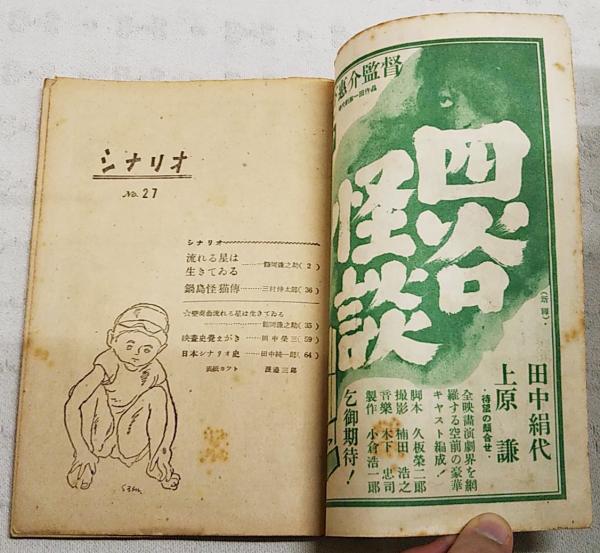 シナリオ
No. 27
シナリオ
流れる星は
生きてゐる……館岡謙之助( 2 )
鍋島怪猫傳……三村伸太郎( 36 )
☆壁奏曲流れる星は生きてゐる
……館岡謙之助( 35 )
映畫史覺えがき……田中榮三( 59 )
日本シナリオ史……田中純一郎( 64 )
表紙カツト 渡邉三郎
惠介監督
四谷
怪談
田中絹代
上原 謙
・待望の顔合せ・
全映畫演劇界を網
羅する空前の豪華
キヤスト編成!
脚本 久板榮二郎
撮影 楠田 浩之
音樂 木下 忠司
製作 小倉浩一郎
乞御期待!